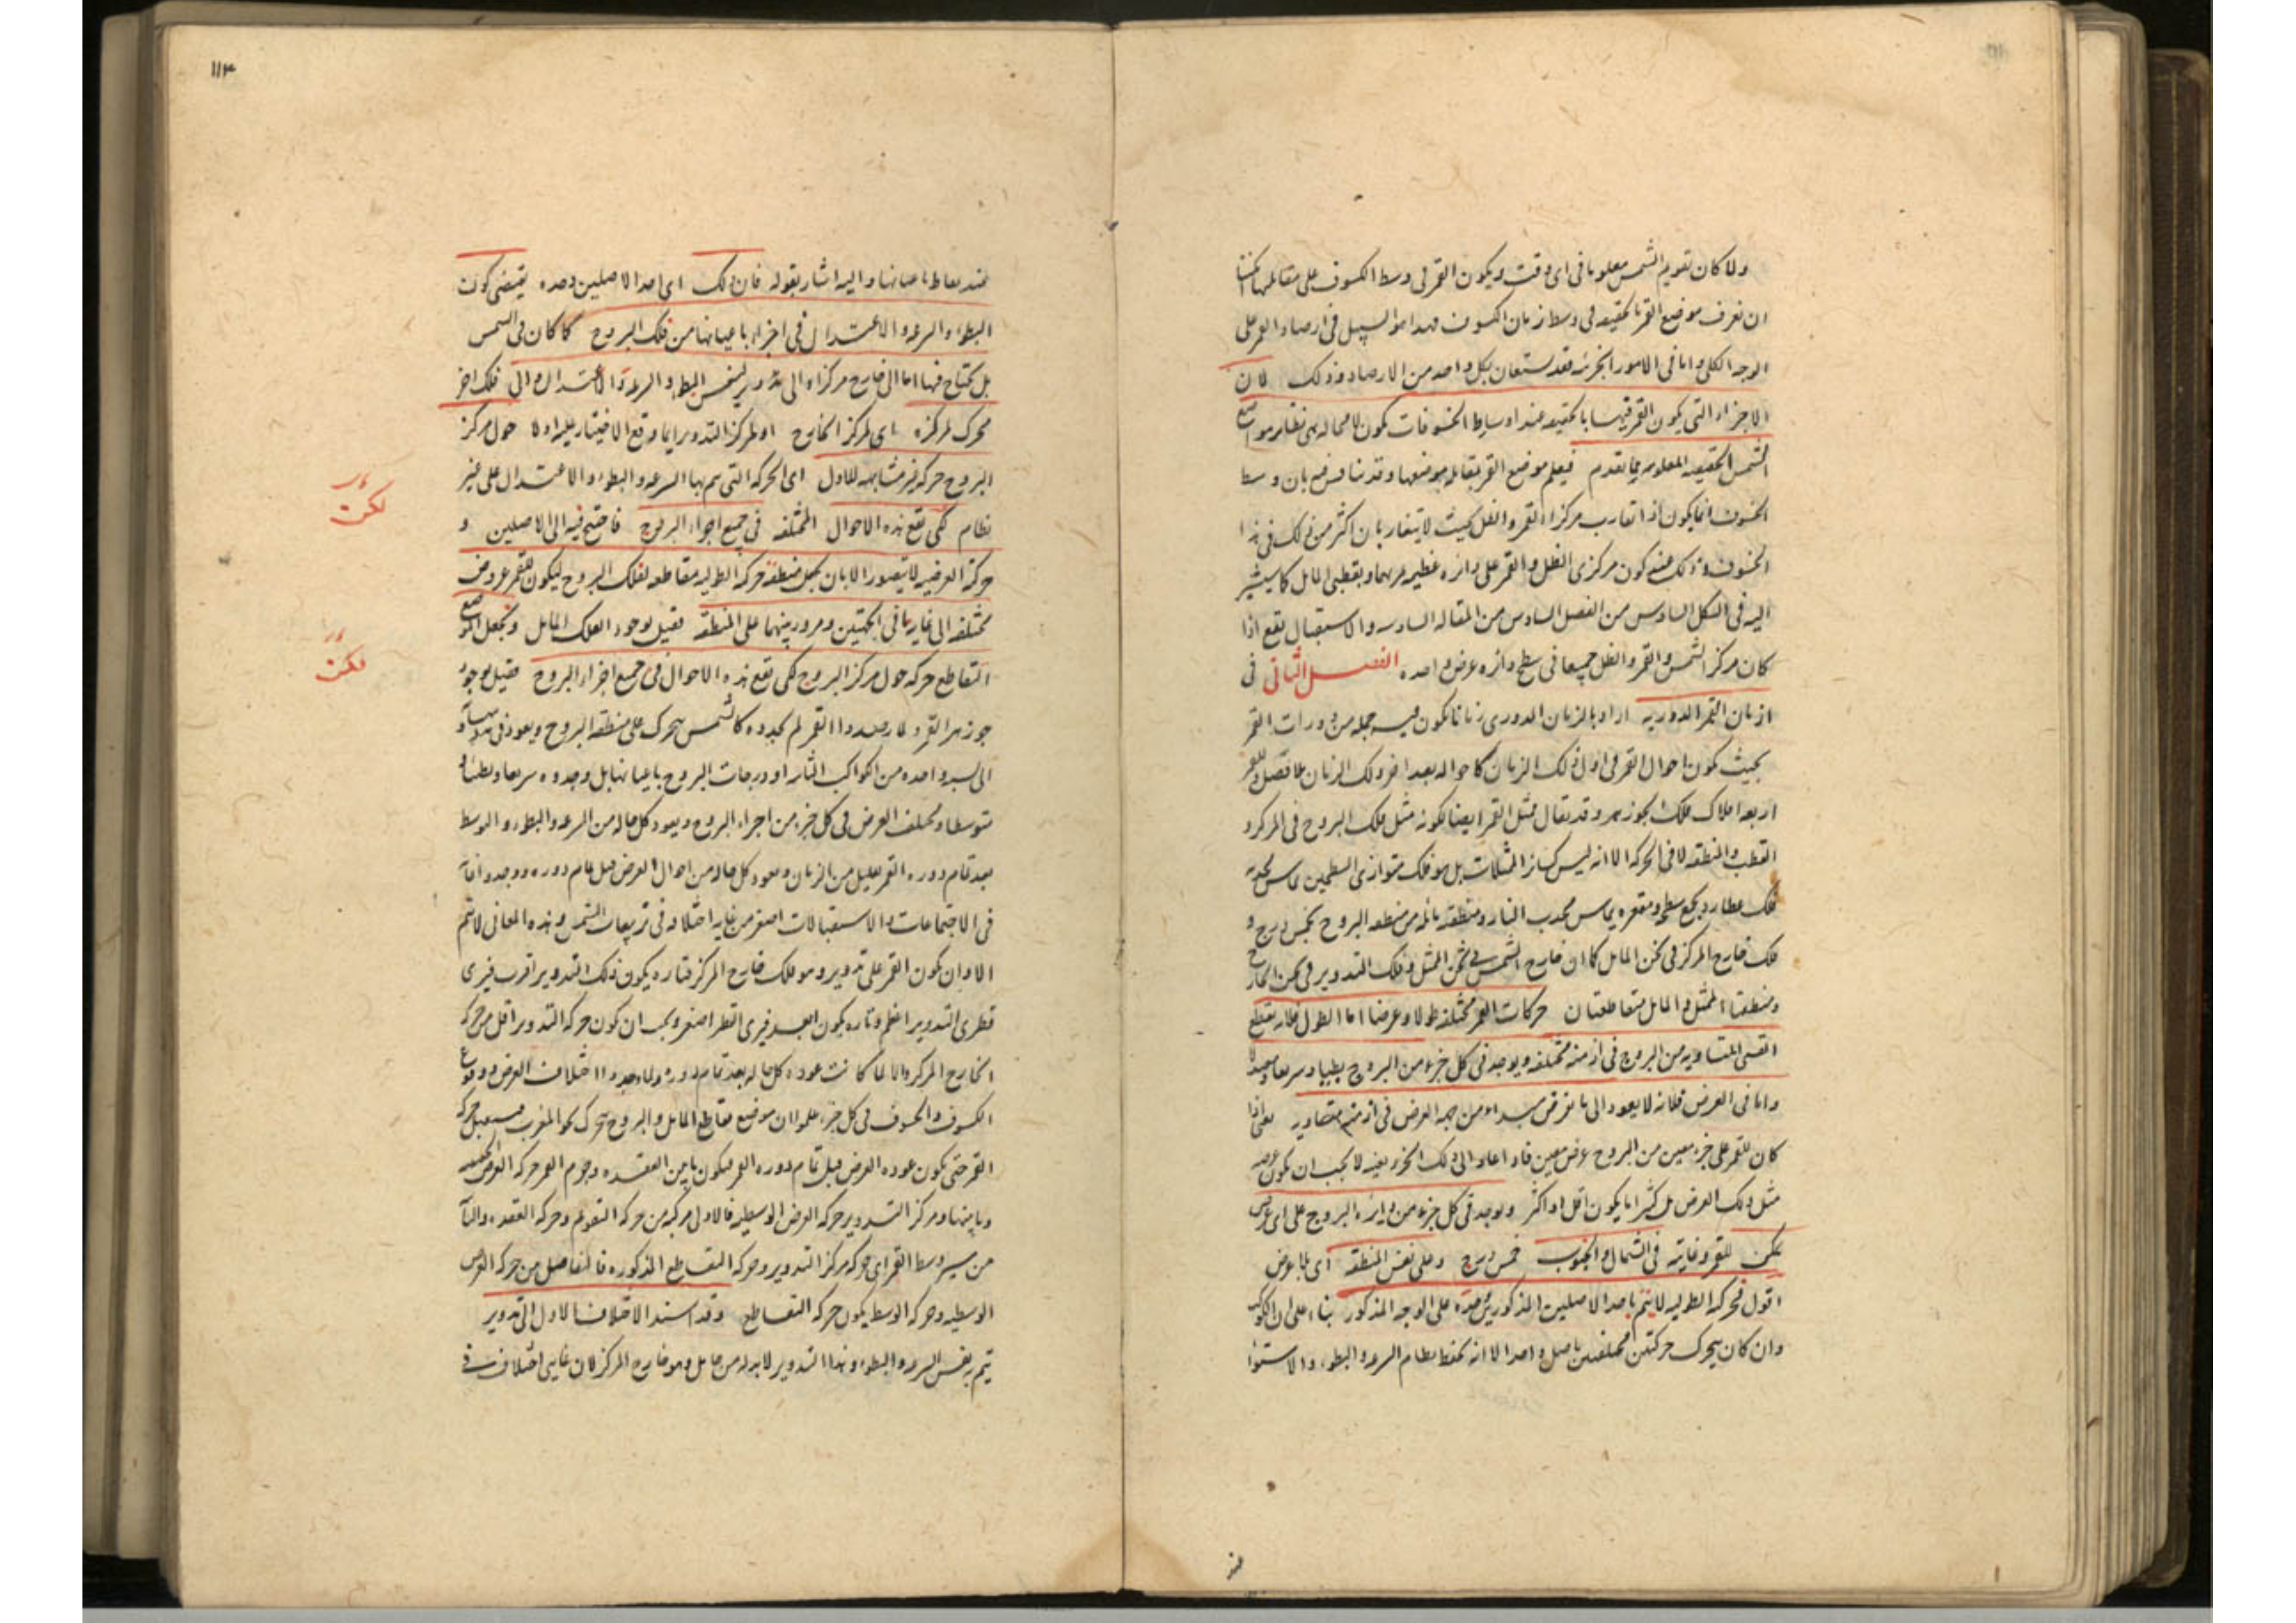 ولما كان تقويم الشمس معلوما فى اى وقت ويكون القمر فى وسط الكسوف على مقابلتها امكننا
ان نعرف موضع القمر بالحقيقه فى وسط زمان الكسوف فهذا هو السبيل فى ارصاد القمر على
الوجه الكلى واما فى الامور الجزئيه فقد يستعان بكل واحد من الارصاد وذلك لان
الاجزاء التى يكون القمر فيها بالحقيقه عند اوساط الخسوفات تكون لا محاله هى نظاير مواضع
الشمس الحقيقيه المعلومه بما تقدم فيعلم موضع القمر بمقابله موضعها وقد بان وسط
الخسوف انما يكون اذا تقارب مركزا القمر والظل بحيث لا يتقاربان اكثر من ذلك فى هذا
الخسوف وذلك عند كون مركزى الظل والقمر على دائره عظيمه تمر بهما وبقطبى المايل كما سيشير
اليه فى الشكل السادس من الفصل السادس من المقاله السادسه والاستقبال يقع اذا
كان مركز الشمس والقمر والظل جميعا فى سطح دائره عرض واحده الفصل الثانى فى
ازمان القمر الدوريه اراد بالزمان الدورى زمانا يكون فيه جمله من دورات القمر
بحيث يكون احوال القمر فى اول ذلك الزمان كاحواله بعد اخر ذلك الزمان بلا تفصيل وللقمر
اربعه افلاك فلك الجوزهر وقد يقال ممثل القمر ايضا لكونه مثل فلك البروج فى المركز و
القطب والمنطقه لا فى الحركه الا انه ليس كسائر الممثلات بل هو فلك متوازى السطحين يماس محدبه
فلك عطارد بجميع سطحه ومقعره يماس محدب النار ومنطقته مائله من منطقه البروج بخمس درج و
فلك خارج المركز فى ثخن المايل كما ان خارج الشمس فى ثخن الممثل وفلك التدوير فى ثخن الخارج
ومنطقتا الممثل والمايل متقاطعتان حركات القمر مختلفه طولا وعرضا اما الطول فلانه يقطع
القسى المتساويه من البروج فى ازمنه مختلفه ويوجد فى كل جزء من البروج بطيئا وسريعا ومعتدلا
واما فى العرض فلانه لا يعود الى ما يفرض مبداء من جهه العرض فى ازمنه متساويه يعنى اذا
كان للقمر على جزء معين من البروج عرض معين فاذا عاد الى ذلك الجزء بعينه لا يجب ان يكون عرضه
مثل ذلك العرض بل كثيرا ما يكون اقل او اكثر ويوجد فى كل جزء من دائره البروج على اى عرض
يمكن للقمر وغايته فى الشمال والجنوب خمس درج وعلى نفس المنطقه اى بلا عرض
اقول فحركه الطوليه لا يتم باحد الاصلين المذكورين وحده على الوجه المذكور بناء على ان الكوكب
وان كان يتحرك حركتين مختلفتين باصل واحد الا انه يحفظ نظام السرعه والبطوء والاستواء
عند
١١٣
عند نقاط باعيانها واليه اشار بقوله فان ذلك اى احد الاصلين وحده يقتضى كون
البطوء والسرعه والاعتدال فى اجزاء باعيانها من فلك البروج كما كان فى الشمس
بل يحتاج فيها اما الى خارج مركز او الى تدوير لنفس البطوء والسرعه والاعتدال والى فلك اخر
محرك لمركزه اى لمركز الخارج او لمركز التدوير ايما وقع الاختيار عليه اولا حول مركز
البروج حركه غير مشابهه للاول اى الحركه التى تتم بها السرعه والبطوء والاعتدال على غير
نظام لكى تقع هذه الاحوال المختلفه فى جميع اجزاء البروج فاحتج فيه الى الاصلين و
حركته العرضيه لا يتصور الا بان يجعل منطقه حركه الطوليه مقاطعه لفلك البروج ليكون للقمر عروض
مختلفه الى غاية ما فى الجهتين ومرور بينهما على المنطقه فقيل بوجود الفلك المايل ويجعل لموضع
التقاطع حركه حول مركز البروج لكى تقع هذه الاحوال فى جميع اجزاء البروج فقيل بوجود
جوزهر القمر ولما رصدوا القمر لم يجدوه كالشمس يتحرك على منطقه البروج ويعود
الى نسبه واحده من الكواكب الثابته او درجات البروج باعيانها بل وجدوه سريعا وبطيئا و
متوسطا ومختلف العرض فى كل جزء من اجزاء البروج ويعود كل حاله من السرعه والبطوء والوسط
بعد تمام دوره القمر بقليل من الزمان ويعود كل حاله من احوال العرض قبل تمام دوره ووجدوا
فى الاجتماعات والاستقبالات اصغر من غايه اختلافه فى تربيعات الشمس وهذه المعانى لا تتم
الا وان يكون القمر على تدوير وهو فلك خارج المركز فتاره يكون ذلك التدوير اقرب فيرى
قطرى التدوير اعظم وتاره يكون ابعد فيرى القطر اصغر ويجب ان يكون حركه التدوير اقل من حركه
الخارج المركز والا لما كانت عوده كل حاله بعد تمام دوره ولما وجدوا اختلاف العرض ووقوع
الكسوف والخسوف فى كل جزء علموا ان موضع تقاطع المايل والبروج يتحرك نحو المغرب حركه
القمر حتى يكون عوده العرض قبل تمام دوره القمر فيكون ما بين العقده وجرم القمر حركه العرض الحقيقيه
وما بينها ومركز التدوير حركه العرض الوسطيه فالاول مركبه من حركه التقويم وحركه العقده والثانيه
من مسير وسط القمر اى حركه مركز التدوير وحركه التقاطع المذكوره فالتفاضل بين حركه العرض
الوسطيه وحركه الوسط يكون حركه التقاطع وقد اسند الاختلاف الاول الى تدوير
يتم به نفس السرعه والبطوء وهذا التدوير لابد له من حامل وهو خارج المركز لان غايتى اختلاف
لكن
لكن